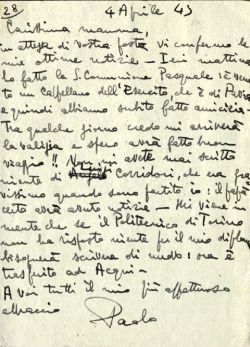 28
4 Aprile 43
Carissima mamma,
in attesa di vostra posta vi confermo le
mie ottime notizie - Ieri mattina
ho fatto la S. Comunione Pasquale: è venuto
un Cappellano dell'Esercito, che è di Pavia
e quindi abbiamo subito fatto amicizia -
Tra qualche giorno credo mi arriverà
la valigia e spero avrà fatto buon
viaggio!! Non mi avete mai scritto
niente di Corridori, che era gra
vissimo quando sono partito io: il papà
certo avrà avuto notizie - Mi viene in
mente che se il Politecnico di Torino
non ha risposto niente per il mio diploma
bisognerà scrivere di nuovo: ora è
trasferito ad Acqui -
A voi tutti il mio più affettuoso
abbraccio
Paolo